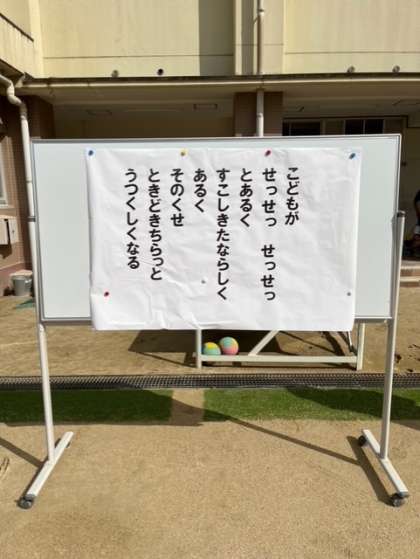 こどもが
せっせっ　せっせっ
とあるく
すこしきたならしく
あるく
そのくせ
ときどきちらっと
うつくしくなる